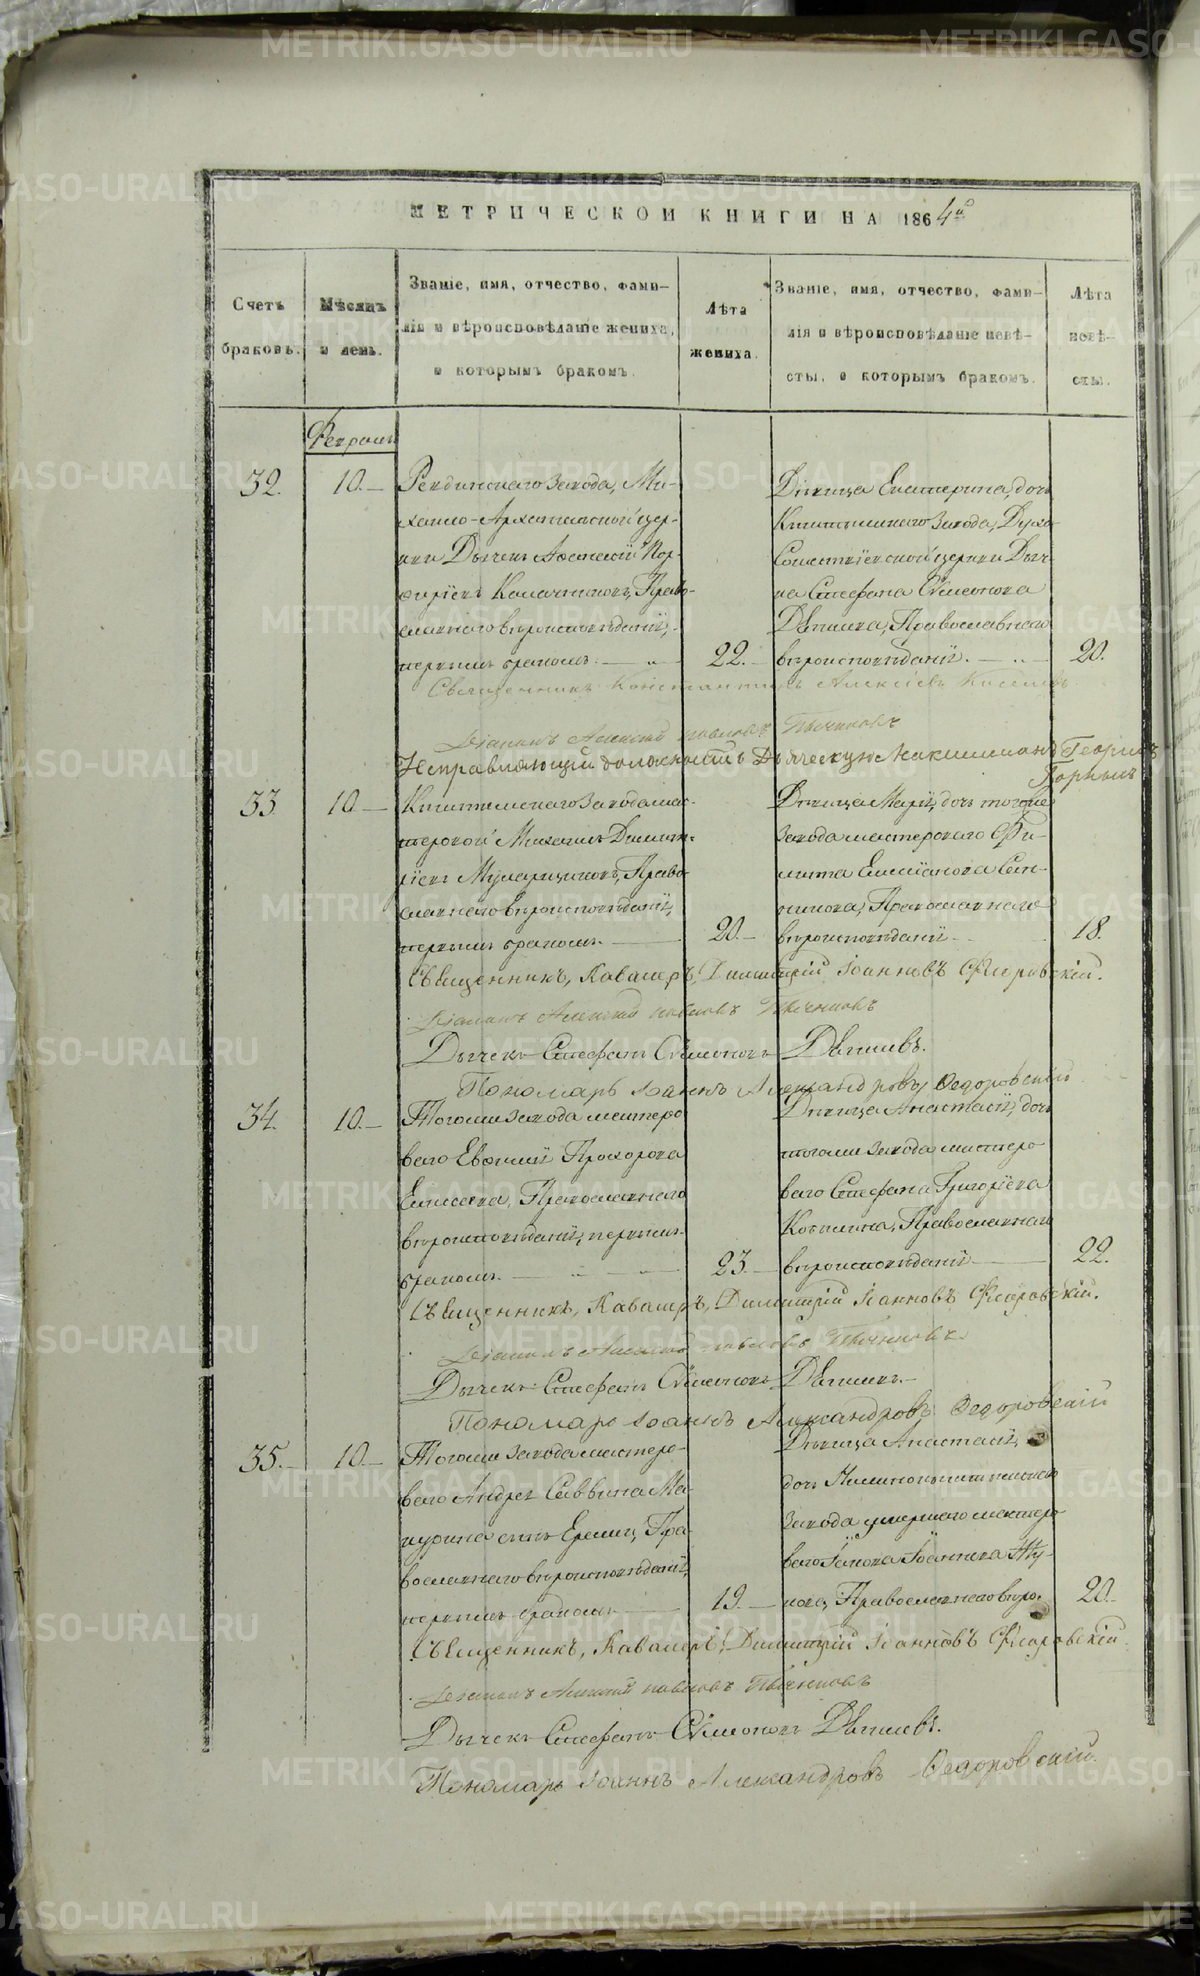 МЕТРИЧЕСКОЙ КНИГИ НА 1864й
Счетъ
браковъ.
Мѣсяцъ
и день.
Званіе, имя, отчество, фами-
лія и вѣроисповѣданіе жениха,
и которымъ бракомъ.
Лѣта
жениха.
Званіе, имя, отчество, фами-
лія и вѣроисповѣданіе невѣ-
сты, и которымъ бракомъ.
Лѣта
невѣ-
сты.
32.
10.
Ревдинскаго Завода, Ми-
хаило-Архангельской цер-
кви Дьячекъ Алексѣй Пор-
фиріевъ Калачниковъ, Право-
славнаго вѣроисповѣданія,
первымъ бракомъ.
22.
Дѣвица Екатерина, дочь
Кыштымскаго Завода, Духо-
Сошествіевской церкви Дьяч-
ка Стефана Сѵмеонова
Дѣтлева, Православнаго
вѣроисповѣданія.
20.
Священникъ Константинъ Алексѣевъ Киселевъ
Діаконъ Алексій Павловъ
Исправляющій должность Дьяческую Максимиліанъ Георгіевъ
Горныхъ
33
10.
Кыштымскаго Завода мас-
теровой Михаилъ Димит-
ріевъ Право-
славнаго вѣроисповѣданія,
первымъ бракомъ.
20.
Дѣвица Марія, дочь тогоже
Завода мастероваго Фи-
липпа Емиліанова Сет-
никова, Православнаго
вѣроисповѣданія
18.
Священникъ, Кавалеръ, Димитрій Іоанновъ Флоровскій.
Діаконъ Алексій Павловъ
Дьячекъ Стефанъ Сѵмеоновъ Дѣтлевъ.
Пономарь Іоаннъ Александровъ Ѳедоровскій
34.
10.
Тогоже Завода мастеро
ваго Евѳимій Прохорова
Елисеева, Православнаго
вѣроисповѣданія, первымъ
бракомъ.
23.
Дѣвица Анастасія, дочь
тогоже Завода мастеро
ваго Стефана Григоріева
Костина, Православнаго
вѣроисповѣданія
22.
Священникъ, Кавалеръ, Димитрій Іоанновъ Флоровскій.
Діаконъ Алексій Павловъ
Дьячекъ Стефанъ Сѵмеоновъ Дѣтлевъ.
Пономарь Іоаннъ Александровъ Ѳедоровскій
35.
10.
Тогоже Завода мастеро-
ваго Андрея Саввина Ма-
зурина сынъ Ермилъ, Пра-
вославнаго вѣроисповѣданія,
первымъ бракомъ
19.
Дѣвица Анастасія,
дочь Нижнокыштымскаго
Завода умершаго мастеро
ваго Іакова Іоаннова
Православнаго вѣро.
20.
Священникъ, Кавалеръ, Димитрій Іоанновъ Флоровскій
Діаконъ Алексій Павловъ
Дьячекъ Стефанъ Сѵмеоновъ Дѣтлевъ.
Пономарь Іоаннъ Александровъ Ѳедоровскій.
METRIKI.GASO-URAL.RU